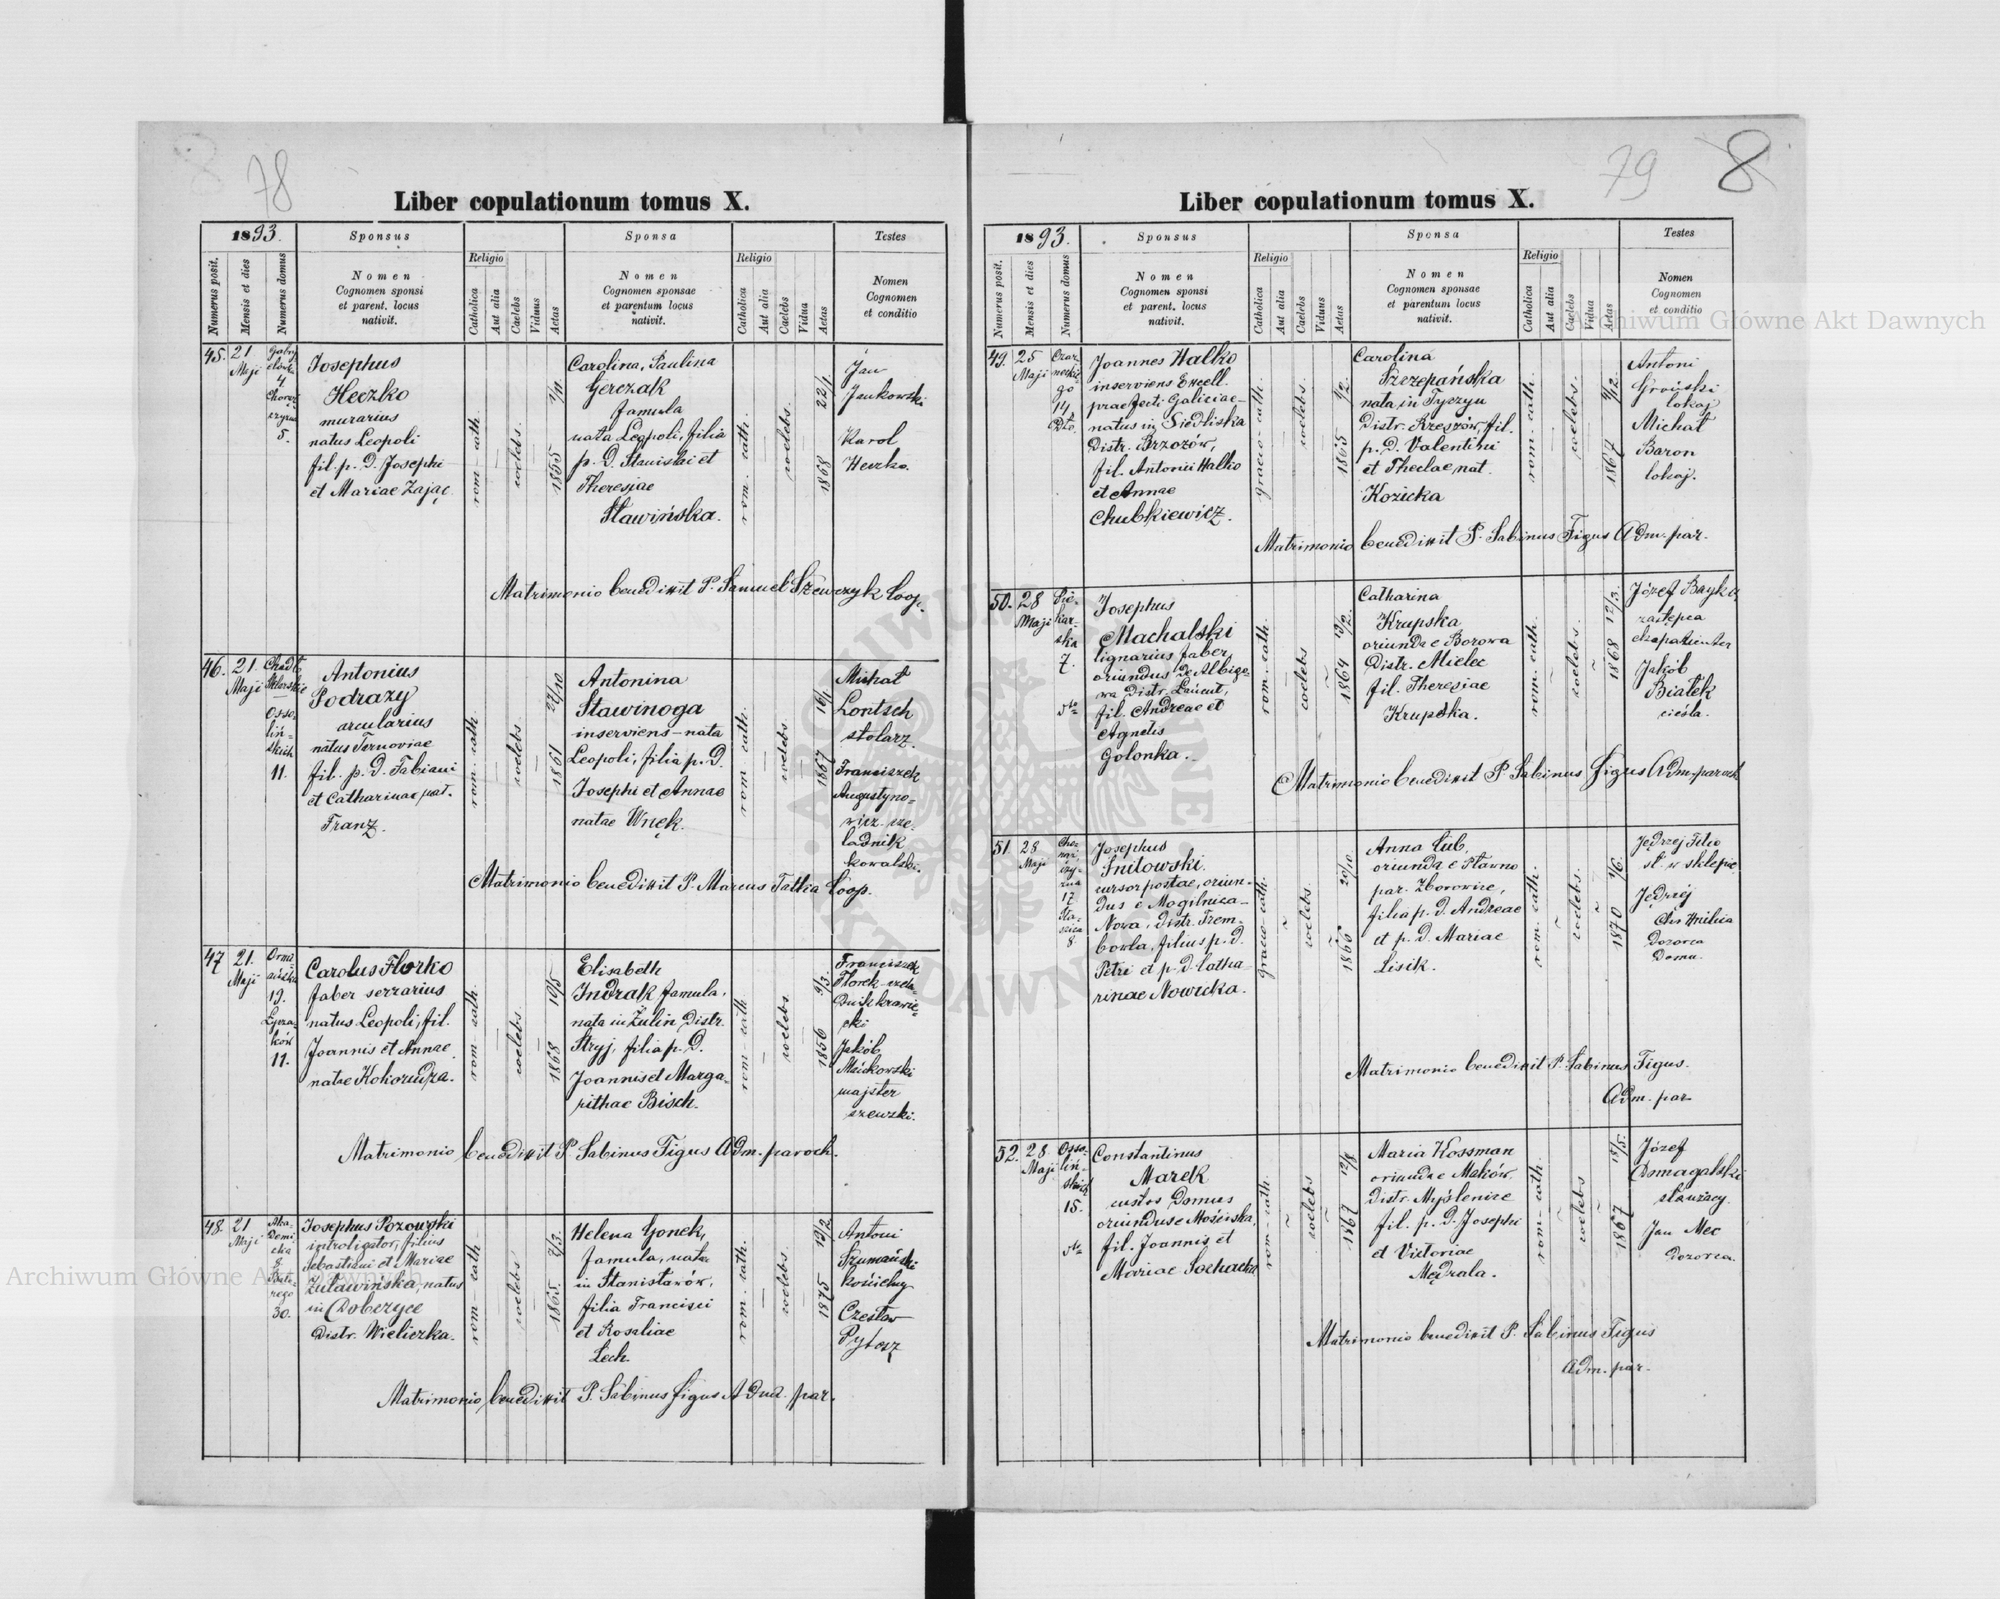 78
Liber copulationum tomus X.
1893.
Sponsus
Sponsa
Testes
Religio
Religio
Numerus posit.
Mensis et dies
Numerus domus
Nomen
Cognomen sponsi
et parent. locus
nativit.
Catholica
Aut alia
Caelebs
Viduus
Aetas
Nomen
Cognomen sponsae
et parentum locus
nativit.
Catholica
Aut alia
Caelebs
Vidua
Aetas
Nomen
Cognomen
et conditio
45.
21
Maji
5.
Josephus
Heczko
murarius
natus Leopoli
fil. p. D. Josephi
et Mariae Zając
rom. cath.
coelebs.
1855
Carolina, Paulina
Gerczak
famula
nata Leopoli, filia
p. D. Stanislai et
Theresiae
Sławińska.
rom. cath.
coelebs.
1868 22/1
Jan
Jankowski
Karol
Heczko.
Matrimonio benedixit P. Samuel Szewczyk Coop.
46.
21.
Maji
Osso-
liń-
skich
11.
Antonius
Podrazy
arcularius
natus Tarnoviae
fil. p. D. Fabiani
et Catharinae nat.
Franz.
rom. cath
coelebs
1861 21/10
Antonina
Sławinoga
inserviens - nata
Leopoli, filia p. D.
Josephi et Annae
natae Wnęk.
rom. cath.
coelebs.
1867 16/1
Michał
Lortsch
stolarz.
Franciszek
Augustyno-
wicz. cze-
ladnik
kowalski.
Matrimonio benedixit P. Marcus Coop.
47
21.
Maji
19.
Łycza-
ków
11.
Carolus Florko
faber serrarius
natus Leopoli, fil.
Joannis et Annae
natae Kokorudza.
rom. cath.
coelebs.
1868 10/5
Elisabeth
Indrak famula.
nata in Żulin Distr.
Stryj, filia p. D.
Joannis et Marga-
rithae Bisch.
rom. cath
coelebs.
1856 9/3.
Franciszek
Florek czela-
dnik krawie-
cki
Jakób
majster
szewski.
Matrimonio benedixit P. Sabinus Figus Adm. paroch.
48.
21
Maji
Aka-
demi
cka
8
30.
Josephus Pozowski
introligator, filius
Sebastiani et Mariae
Zuławińska, natus
in Dobczyce
Distr. Wieliczka.
rom. cath
coelebs
1865. 7/3.
Helena Gonek,
famula, nata
in Stanisławów,
filia Francisci
et Rosaliae
Lech.
rom. cath.
coelebs.
1875 13/2
Antoni
Szumański
kościelny
Czesław
Pytosz
Matrimonio benedixit P. Sabinus Figus Adm. par.
79
8
Liber copulationum tomus X.
1893.
Sponsus
Sponsa
Testes
Religio
Religio
Numerus posit.
Mensis et dies
Numerus domus
Nomen
Cognomen sponsi
et parent. locus
nativit.
Catholica
Aut alia
Caelebs
Viduus
Aetas
Nomen
Cognomen sponsae
et parentum locus
nativit.
Catholica
Aut alia
Caelebs
Vidua
Aetas
Nomen
Cognomen
et conditio
49.
25
Maji
Czar-
neckie-
go
14
Joannes Halko
inserviens Excell.
praefecti Galiciae -
natus in Siedliska
Distr. Brzozów,
fil. Antonii Halko
et Annae
Chubkiewicz.
graeco-cath.
coelebs.
1865 /2.
Carolina
Szczepańska
nata in Tyczyn
Distr. Rzeszów, fil.
p. D. Valentini
et Theclae, nat.
Kozicka
rom. cath.
coelebs.
Antoni
Groński
lokaj
Michał
Baron
lokaj.
Matrimonio benedixit P. Sabinus Figus Adm. par.
50.
28
Maji
Pie-
kar-
ska
7.
Josephus
Machalski
lignarius faber,
oriundus de Albigo-
wa Distr. Łańcut,
fil. Andreae et
Agnetis
Golonka.
rom. cath.
coelebs
1864 13/2.
Catharina
Krupska
oriunda e Borowa
Distr. Mielec
fil. Theresiae
Krupska.
rom. cath.
coelebs.
1868 12/3.
Józef Bayka
zastępca
Jakób
Białek
cieśla.
Matrimonio benedixit P. Sabinus Figus Adm. paroch
51
28
Maji
17.
8.
Josephus
Snitowski.
cursor postae, oriun-
dus e Mogilnica -
Nowa, Distr. Trem-
bowla, filius p. D.
Petri et p. D. Catha-
rinae Nowicka.
graeco-cath.
coelebs.
1866 20/10
Anna Lub,
oriunda e Pławno
par. Zborowice,
filia p. D. Andreae
et p. D. Mariae
Lisik.
rom. cath.
coelebs.
1870 4/6.
sł. w sklepie
Jędrzej
Dozorca
Domu.
Matrimonio benedixit P. Sabinus Figus.
Adm. par
52.
28
Maji
Osso-
liń-
skich
15.
Constantinus
Marek
custos Domus
oriundus e Mościska,
fil. Joannis et
Mariae Sochacka
rom. cath.
coelebs
1867 12/8
Maria Kossman
oriunda e Maków.
Distr. Myślenice
fil. p. D. Josephi
et Victoriae
Mędrala.
rom. cath.
coelebs
1867 18/5.
Józef
Domagalski
służący.
Jan Mec
Dozorca.
Matrimonio benedixit P. Sabinus Figus
Adm. par.
Archiwum Główne Akt Dawnych
Archiwum Główne Akt Dawnych
ARCHIWUM GŁÓWNE AKT DAWNYCH